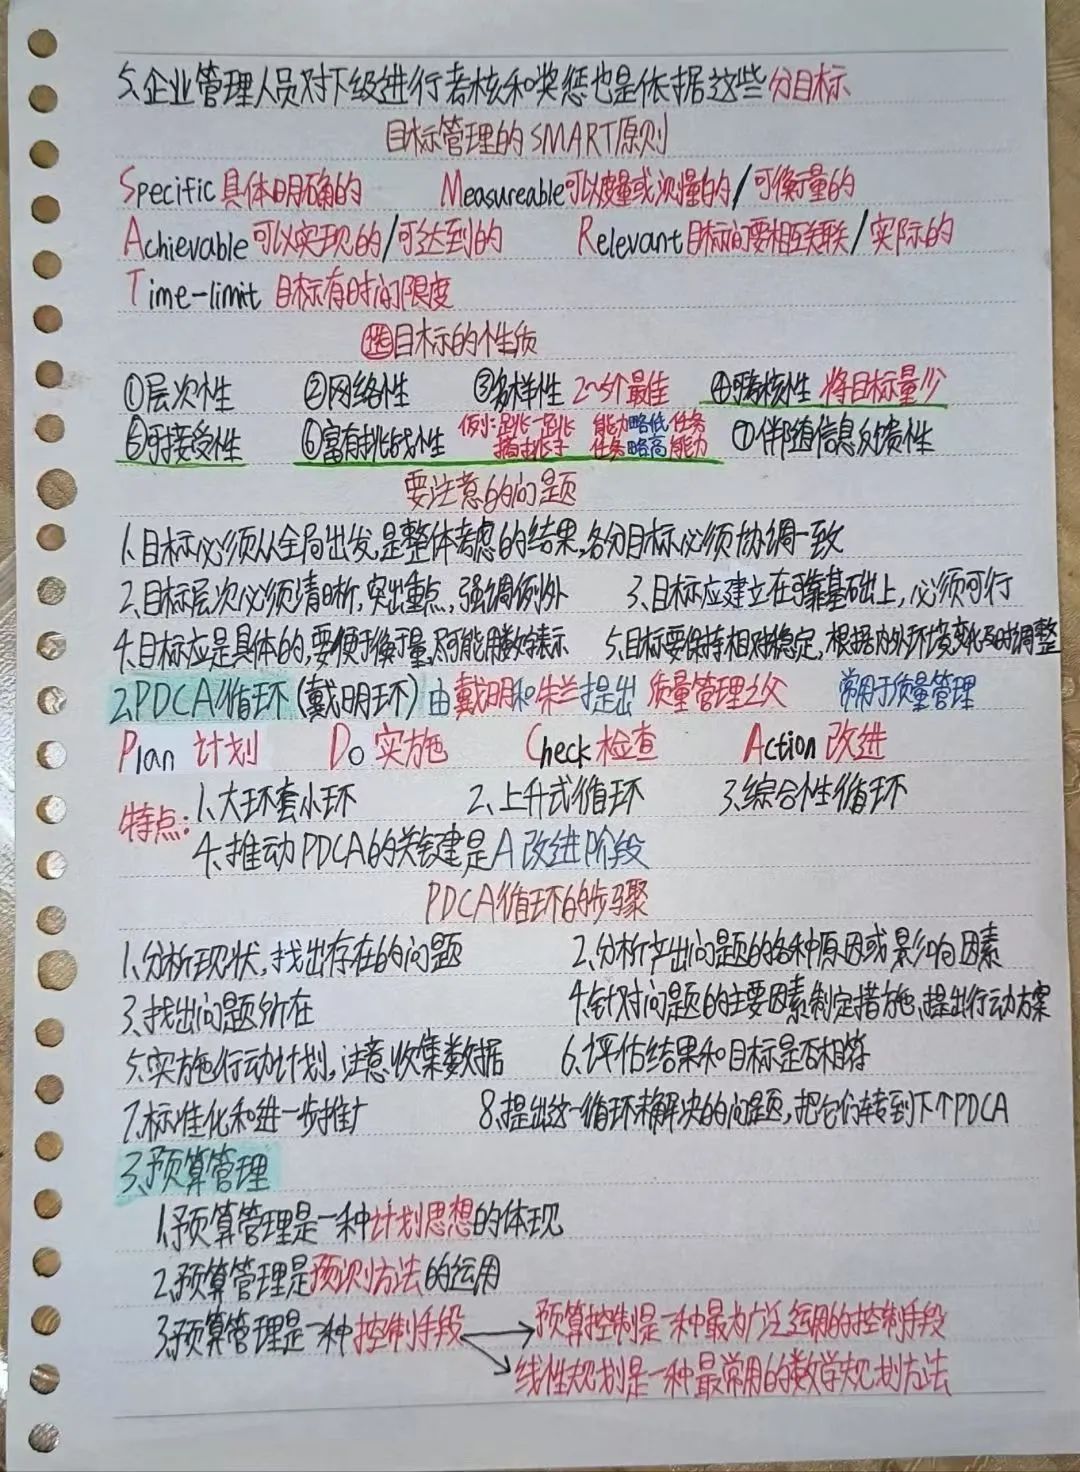 5.企业管理人员对下级进行考核和奖惩也是依据这些分目标
目标管理的SMART原则
Specific具体明确的 Measureable可以度量或测量的/可衡量的
Achievable可以实现的/可达到的 Relevant目标间要相互关联/实际的
Time-limit 目标有时间限度
选目标的性质
①层次性 ②网络性 ③多样性 2~5个最佳 ④可考核性 将目标量少
⑤可接受性 ⑥富有挑战性 例:跳一跳 能力略低任务 ⑦伴随信息反馈性
摘桃子 任务略高能力
要注意的问题
1.目标必须从全局出发,是整体考虑的结果,各分目标必须协调一致
2.目标层次必须清晰,突出重点,强调例外 3.目标应建立在可靠基础上,必须可行
4.目标应是具体的,要便于衡量,尽可能用数字表示 5.目标要保持相对稳定,根据内外环境变化及时调整
2.PDCA循环(戴明环)由戴明和朱兰提出 质量管理之父 常用于质量管理
Plan 计划 Do 实施 Check 检查 Action 改进
特点:1.大环套小环 2.上升式循环 3.综合性循环
4.推动PDCA的关键是A改进阶段
PDCA循环的步骤
1.分析现状,找出存在的问题 2.分析产出问题的各种原因或影响因素
3.找出问题所在 4.针对问题的主要因素制定措施,提出行动方案
5.实施行动计划,注意收集数据 6.评估结果和目标是否相符
7.标准化和进一步推广 8.提出这一循环未解决的问题,把它们转到下个PDCA
3.预算管理
1.预算管理是一种计划思想的体现
2.预算管理是预测方法的运用
3.预算管理是一种控制手段→预算控制是一种最为广泛运用的控制手段
→线性规划是一种最常用的数学规划方法